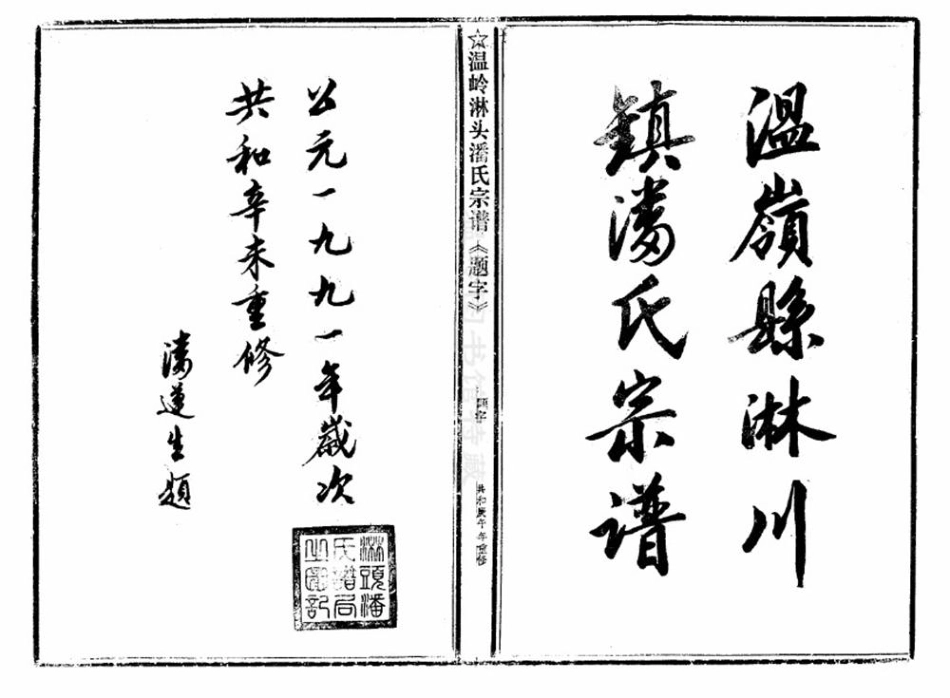 溫嶺縣淋川
鎮潘氏宗谱
☆温岭淋头潘氏宗谱《题字》
题字
共和庚午年重修
公元一九九一年歲次
共和辛未重修
潘蓮生題
淋頭潘
氏譜局
之圖記